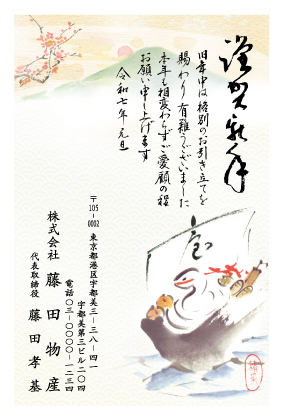 謹賀新年
旧年中は格別のお引き立てを
賜わり有難うございました
本年も相変わらずご愛顧の程
お願い申し上げます
令和七年 元旦
〒105-0002 東京都港区宇都美三-三八-四一
宇都美第三ビル二〇四
電話〇三-〇〇〇〇-一二三四
株式会社 藤田物産
代表取締役 藤田孝基
宝